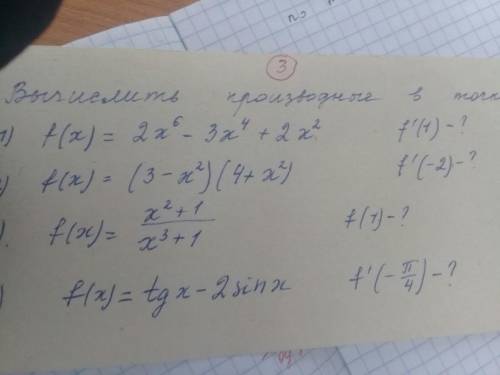 3
Вычислить производные в точк
1) f(x) = 2x⁶ - 3x⁴ + 2x² f'(1) - ?
) f(x) = (3 - x²)(4 + x²) f'(-2) - ?
). f(x) = \frac{x² + 1}{x³ + 1} f(1) - ?
) f(x) = tgx - 2sinx f'(-\frac{π}{4}) - ?